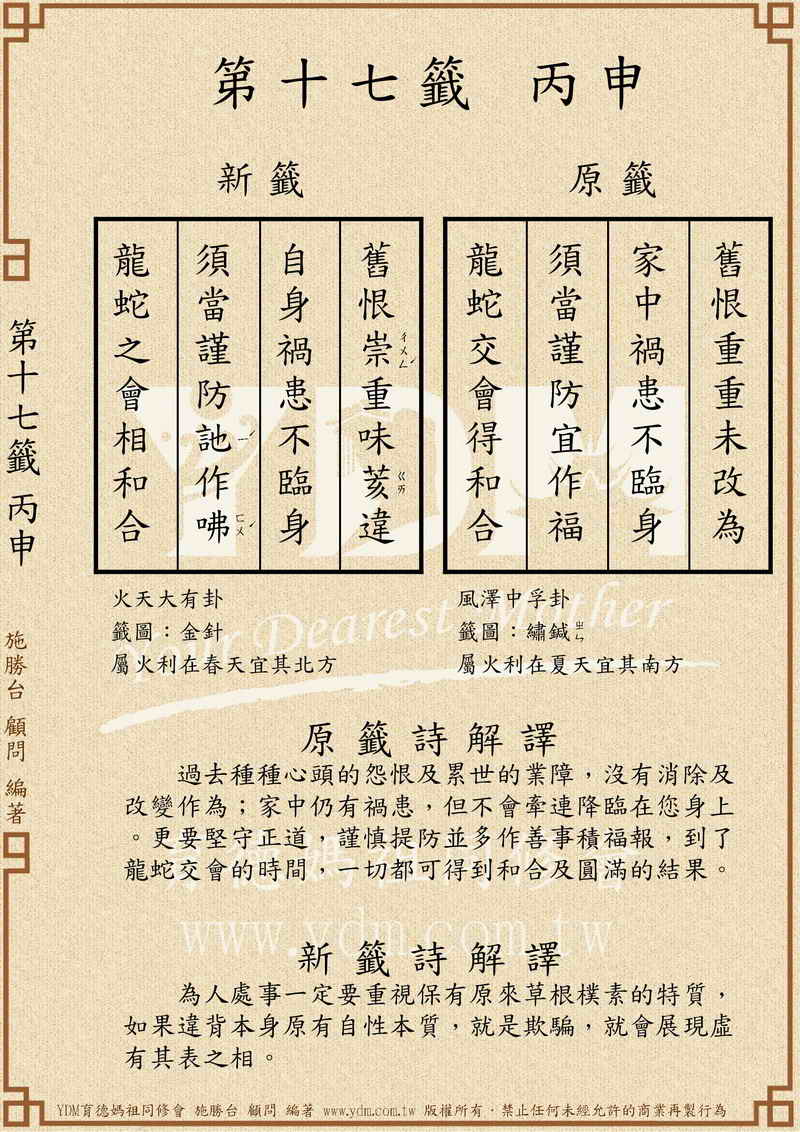 第十七籤 丙申
原籤
舊恨重重未改為
家中禍患不臨身
須當謹防宜作福
龍蛇交會得和合
風澤中孚卦
籤圖：繡鍼ㄓㄣ
屬火利在夏天宜其南方
新籤
舊恨崇ㄔㄨㄥˊ重味荄ㄍㄞ違
自身禍患不臨身
須當謹防訑ㄧˊ作咈ㄈㄨˊ
龍蛇之會相和合
火天大有卦
籤圖：金針
屬火利在春天宜其北方
原籤詩解譯
過去種種心頭的怨恨及累世的業障，沒有消除及
改變作為；家中仍有禍患，但不會牽連降臨在您身上
。更要堅守正道，謹慎提防並多作善事積福報，到了
龍蛇交會的時間，一切都可得到和合及圓滿的結果。
新籤詩解譯
為人處事一定要重視保有原來草根樸素的特質，
如果違背本身原有自性本質，就是欺騙，就會展現虛
有其表之相。
第十七籤 丙申
施勝台 顧問 編著
YDM
Your Dearest Mother
www.ydm.com.tw
YDM育德媽祖同修會 施勝台 顧問 編著 www.ydm.com.tw 版權所有．禁止任何未經允許的商業再製行為